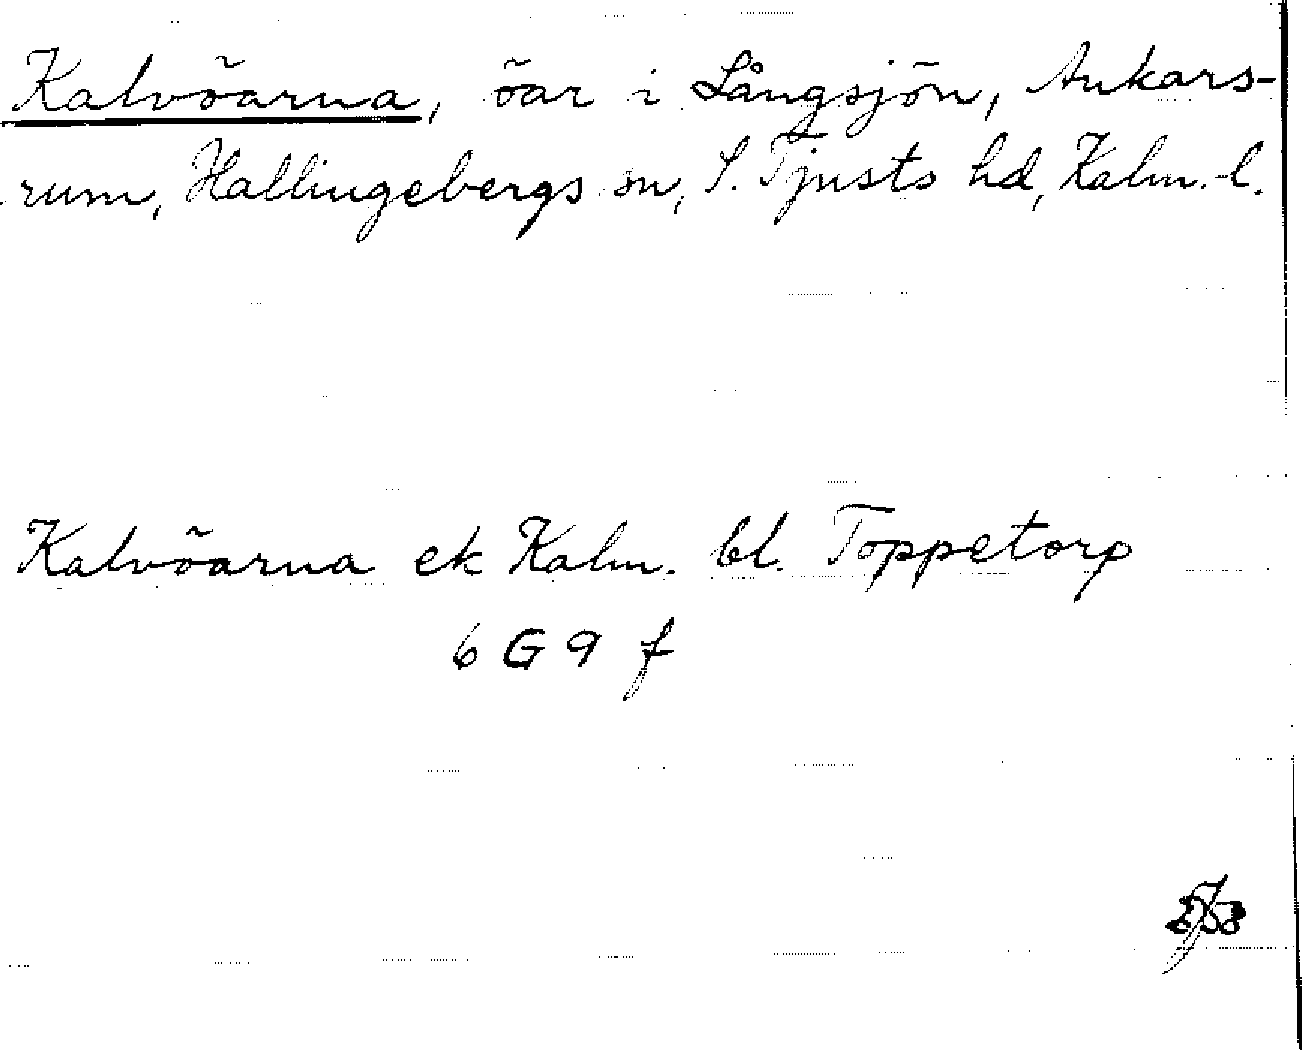 Kalvöarna, öar i Långsjön, Ankars-
rum, Hallingebergs sn, S. Tjusts hd, Kalm. l.
Kalvöarna ek Kalm. bl. Toppetorp
6 G 9 f